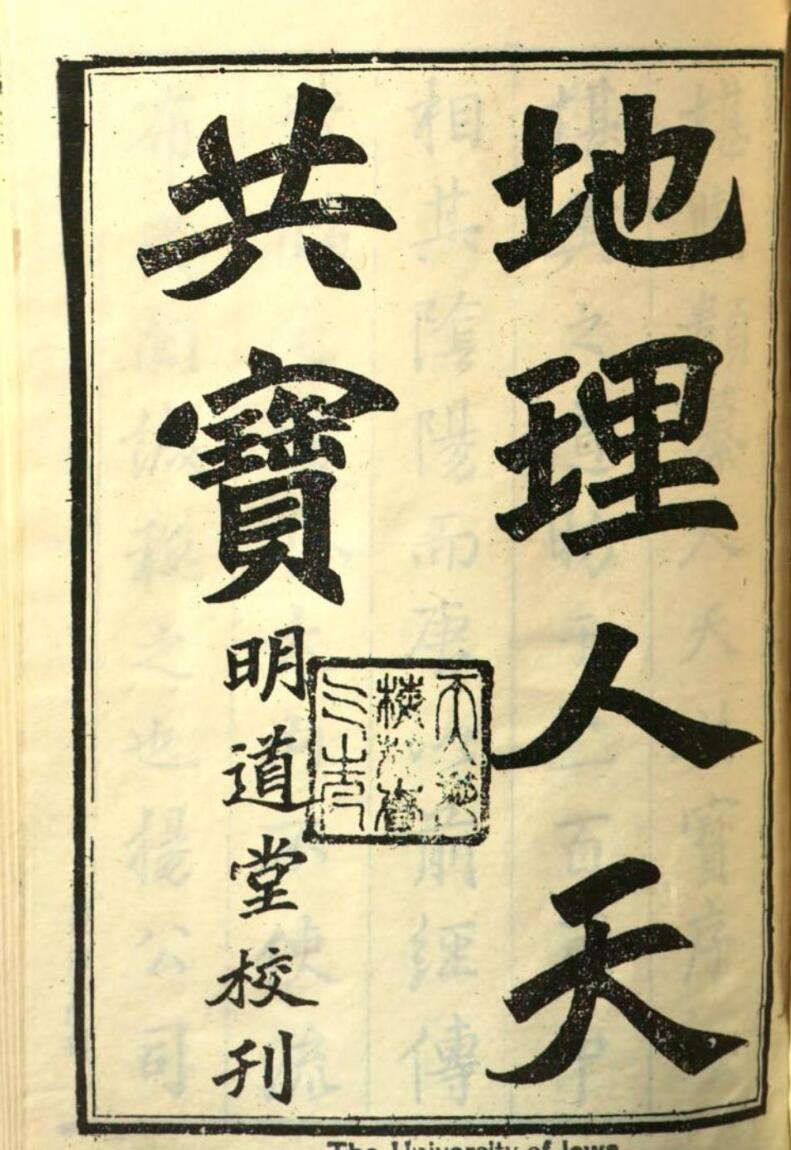 地理人天
共寶
明道堂校刊
The University of Iowa